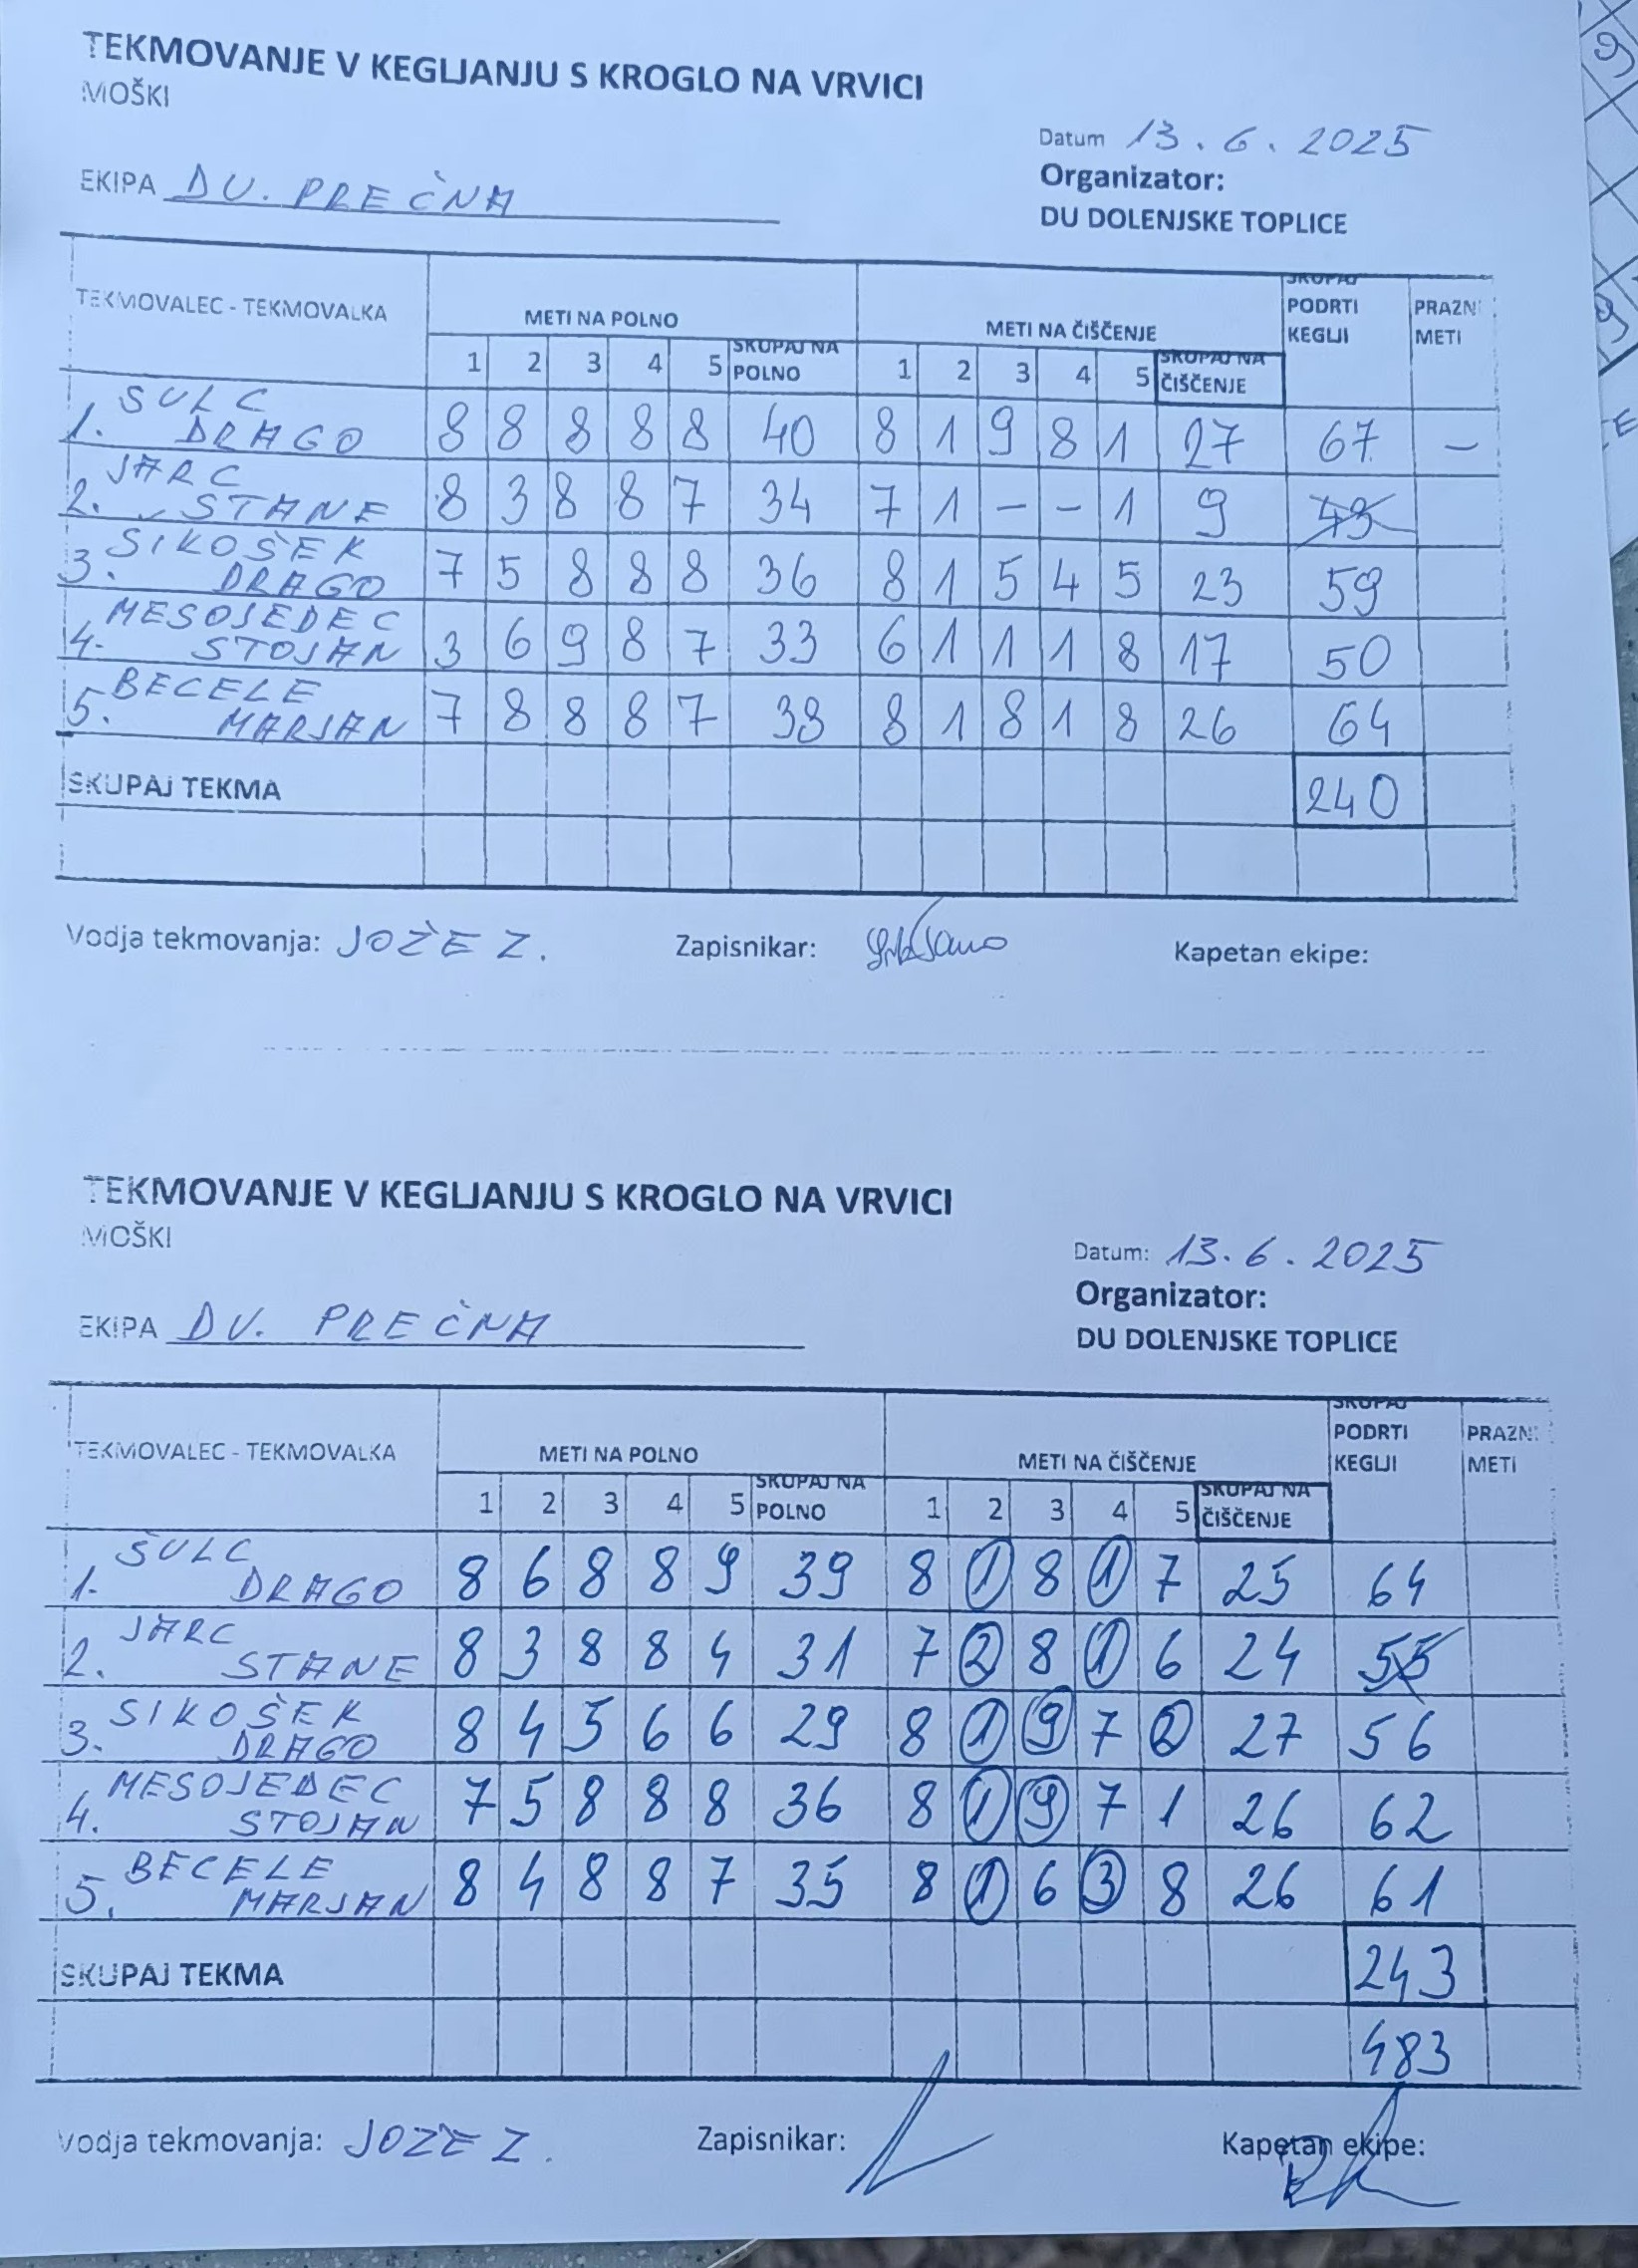 TEKMOVANJE V KEGLJANJU S KROGLO NA VRVICI
MOŠKI
Datum 13.6.2025
EKIPA DU. PREČNA
Organizator:
DU DOLENJSKE TOPLICE
TEKMOVALEC - TEKMOVALKA METI NA POLNO METI NA ČIŠČENJE SKUPAJ PODRTI KEGLJI PRAZNI METI
1 2 3 4 5 SKUPAJ NA POLNO 1 2 3 4 5 SKUPAJ NA ČIŠČENJE
1. ŠULC DRAGO 8 8 8 8 8 40 8 1 9 8 1 27 67 –
2. JARC STANE 8 3 8 8 7 34 7 1 – – 1 9 43
3. SIKOŠEK DRAGO 7 5 8 8 8 36 8 1 5 4 5 23 59
4. MESOJEDEC STOJAN 3 6 9 8 7 33 6 1 1 1 8 17 50
5. BECELE MARJAN 7 8 8 8 7 38 8 1 8 1 8 26 64
SKUPAJ TEKMA 240
Vodja tekmovanja: JOŽE Z. Zapisnikar: Kapetan ekipe:
TEKMOVANJE V KEGLJANJU S KROGLO NA VRVICI
MOŠKI
Datum: 13.6.2025
EKIPA DU. PREČNA
Organizator:
DU DOLENJSKE TOPLICE
TEKMOVALEC - TEKMOVALKA METI NA POLNO METI NA ČIŠČENJE SKUPAJ PODRTI KEGLJI PRAZNI METI
1 2 3 4 5 SKUPAJ NA POLNO 1 2 3 4 5 SKUPAJ NA ČIŠČENJE
1. ŠULC DRAGO 8 6 8 8 9 39 8 1 8 1 7 25 64
2. JARC STANE 8 3 8 8 4 31 7 2 8 1 6 24 55
3. SIKOŠEK DRAGO 8 4 5 6 6 29 8 1 9 7 2 27 56
4. MESOJEDEC STOJAN 7 5 8 8 8 36 8 1 9 7 1 26 62
5. BECELE MARJAN 8 4 8 8 7 35 8 1 6 3 8 26 61
SKUPAJ TEKMA 243
483
Vodja tekmovanja: JOŽE Z. Zapisnikar: Kapetan ekipe: